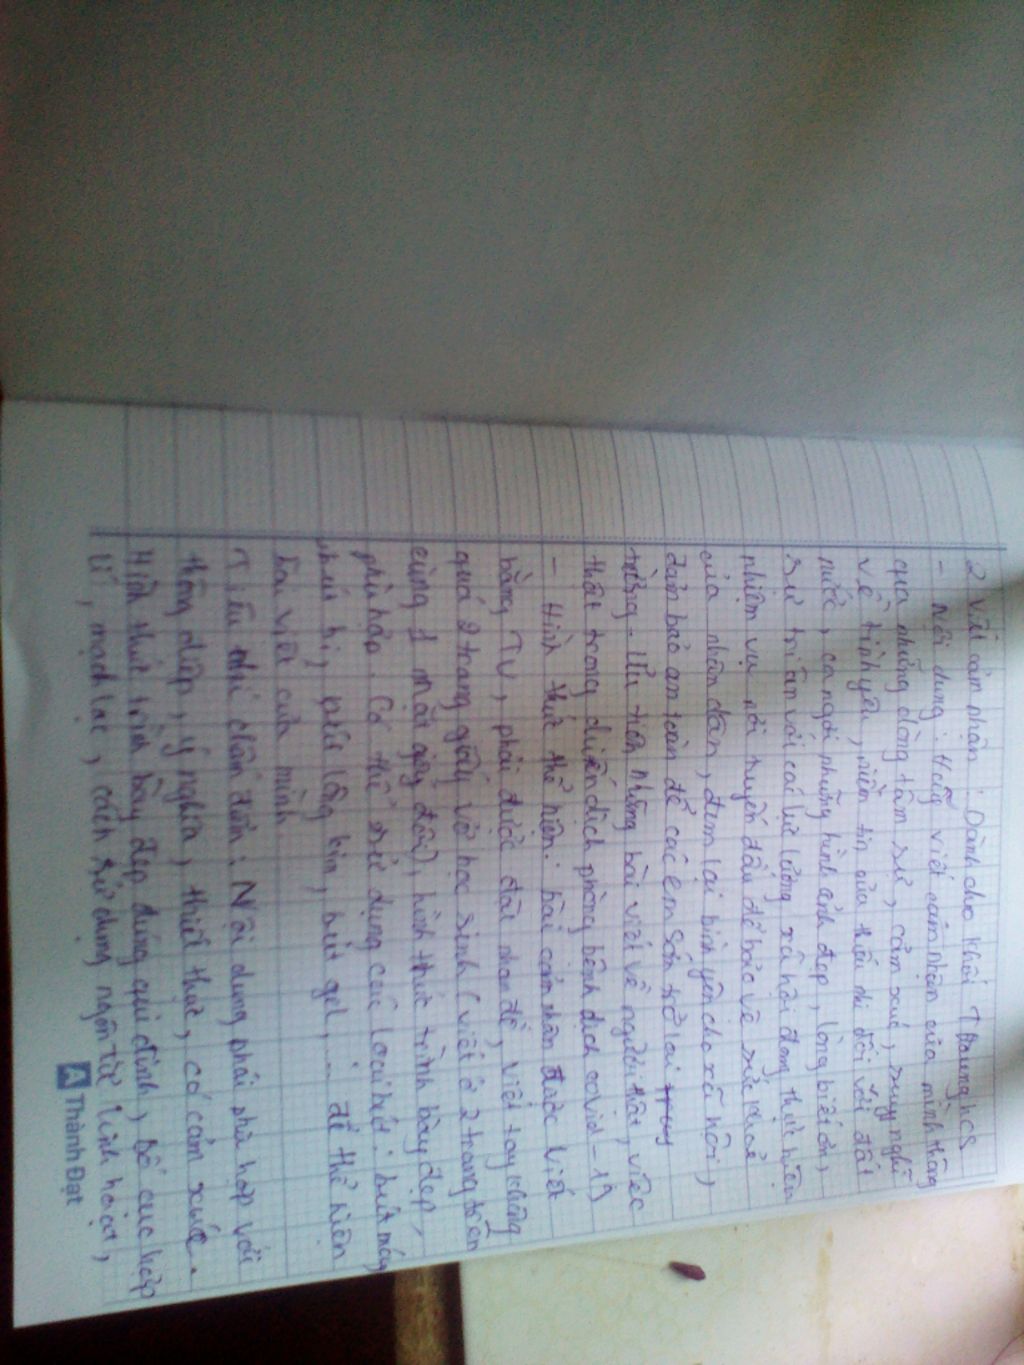 2 Viết cảm nhận : Dành cho khối T
- Nội dung : Hãy viết cảm nhận của mình thông
qua những dòng tâm sự, cảm xúc, suy nghĩ
về tình yêu, niềm tin của thiếu nhi đối với đất
nước, con người những hình ảnh đẹp, lòng biết ơn,
sự tri ân với các lực lượng xã hội đang thực hiện
nhiệm vụ nơi tuyến đầu để bảo vệ sức khoẻ
của nhân dân, đem lại bình yên cho xã hội,
đảm bảo an toàn để các em sớm trở lại
trường - Ưu tiên những bài viết về người thật, việc
thật trong chiến dịch phòng bệnh dịch covid - 19
- Hình thức thể hiện : bài cảm nhận được viết
bằng TV, phải được đặt nhan đề, viết tay không
quá 2 trang giấy vở học sinh ( viết ở 2 trang trên
cùng 1 mặt giấy đôi), hình thức trình bày đẹp,
phù hợp. Có thể sử dụng các loại bút : bút máy,
bút bi, bút lông kim, bút gel, ... để thể hiện
bài viết của mình
Tiêu chí chấm điểm : Nội dung phải phù hợp với
thông điệp, ý nghĩa, thiết thực, có cảm xúc.
Hình thức trình bày đẹp đúng qui định, bố cục hợp
lí, mạch lạc, cách sử dụng ngôn từ linh hoạt,
Thành Đạt